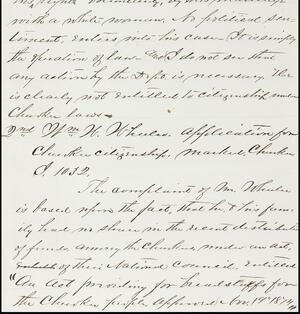 with a white woman. No political sen-
timent, enters into his case. It is simply
the operation of law and I do not see that
any action by the Dept. is necessary. He
is clearly not entitled to citizenship under
Cherokee law.
2nd Wm. H. Wheeler. Application for
Cherokee citizenship. marked, Cherokee
I. 1032.
The complaint of Mr Wheeler
is based upon the fact, that he & his fam-
ily had no share in the recent distribution
of funds among the Cherokees under an act,
of their National Council, entitled
"An Act providing for breadstuffs for
the Cherokee people Approved Nov. 19th 1874"